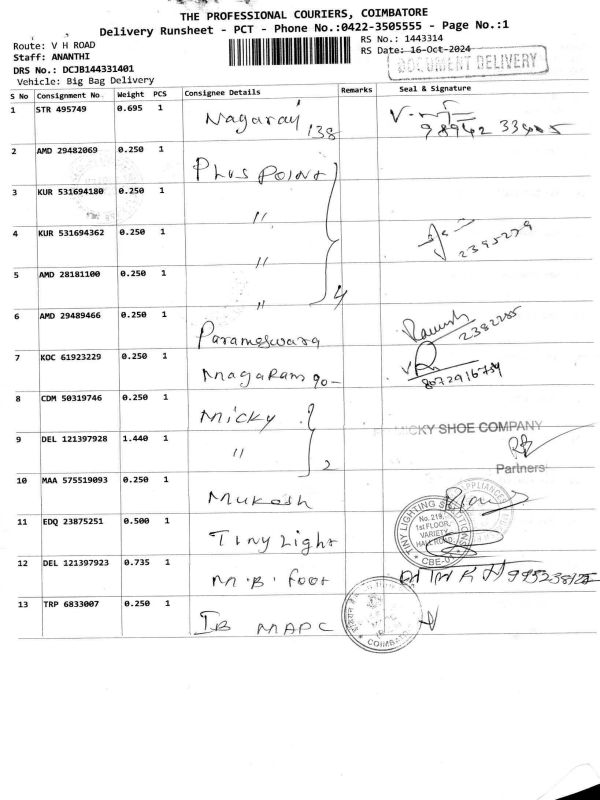 THE PROFESSIONAL COURIERS, COIMBATORE
Delivery Runsheet - PCT - Phone No.:0422-3505555 - Page No.:1
Route: V H ROAD
RS No.: 1443314
Staff: ANANTHI
RS Date: 16-Oct-2024
DRS No.: DCJB144331401
DOCUMENT DELIVERY
Vehicle: Big Bag Delivery
S No Consignment No Weight PCS Consignee Details Remarks Seal & Signature
1 STR 495749 0.695 1 Nagaraj 138
2 AMD 29482069 0.250 1 Plus Point
3 KUR 531694180 0.250 1 "
4 KUR 531694362 0.250 1 " 2395279
5 AMD 28181100 0.250 1 " 4
6 AMD 29489466 0.250 1 Parameswara Ramesh 2382255
7 KOC 61923229 0.250 1 Nagaram 90- 8072916759
8 CDM 50319746 0.250 1 Micky
MICKY SHOE COMPANY
9 DEL 121397928 1.440 1 " 2
Partners
10 MAA 575519093 0.250 1 Mukesh
11 EDQ 23875251 0.500 1 Tiny Light
TINY LIGHTING SOLUTIONS
No. 219,
1st FLOOR,
VARIETY
HALL ROAD
CBE-01
12 DEL 121397923 0.735 1 M.B. Foot
13 TRP 6833007 0.250 1 IB MAPC
COIMBATORE